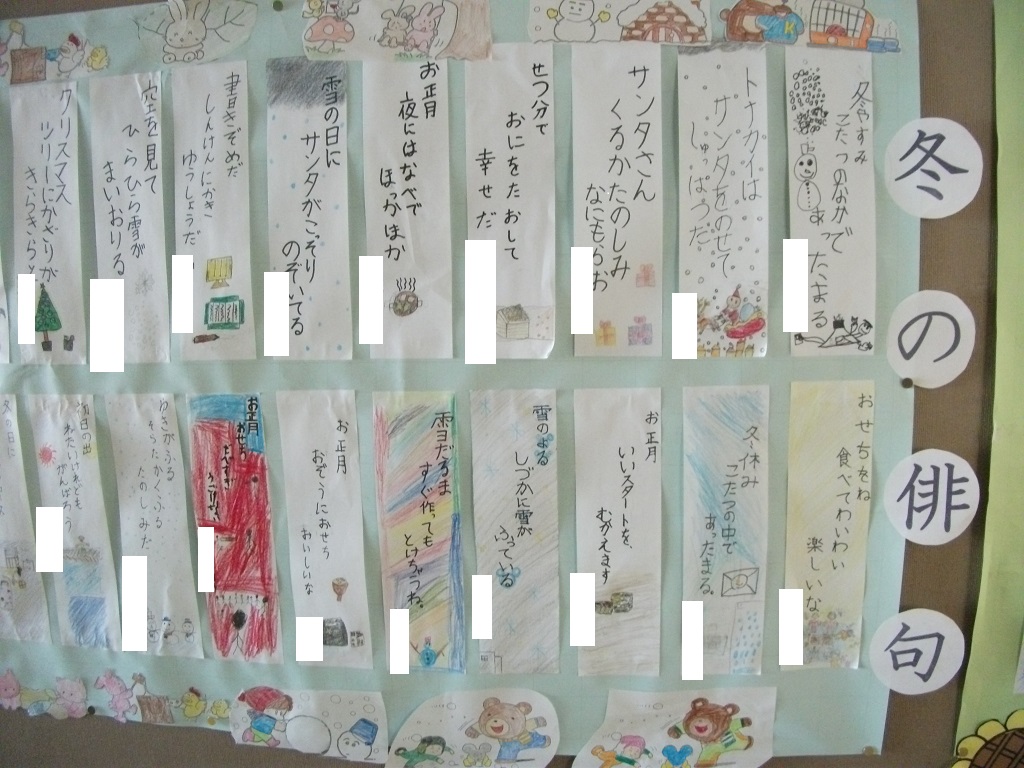 冬
の
俳
句
冬やすみ
こたつのなかで
あたたまる
トナカイは
サンタをのせて
しゅっぱつだ
サンタさん
くるかたのしみ
なにもらお
せつ分で
おにをたおして
幸せだ
お正月
夜にはなべで
ほっかほか
雪の日に
サンタがこっそり
のぞいてる
書きぞめだ
しんけんにかき
ゆうしょうだ
空を見て
ひらひら雪が
まいおりる
クリスマス
ツリーにかざりが
きらきらと
おせちをね
食べてわいわい
楽しいな
冬休み
こたつの中で
あったまる
お正月
いいスタートを、
むかえます
雪のよる
しづかに雪が
ふっている
雪だるま
すぐ作っても
とけちゃうね。
お正月
おぞうにおせち
おいしいな
お正月
おせち
ゆきがふる
たのしみだ
初日の出
がんばろう
冬の日に